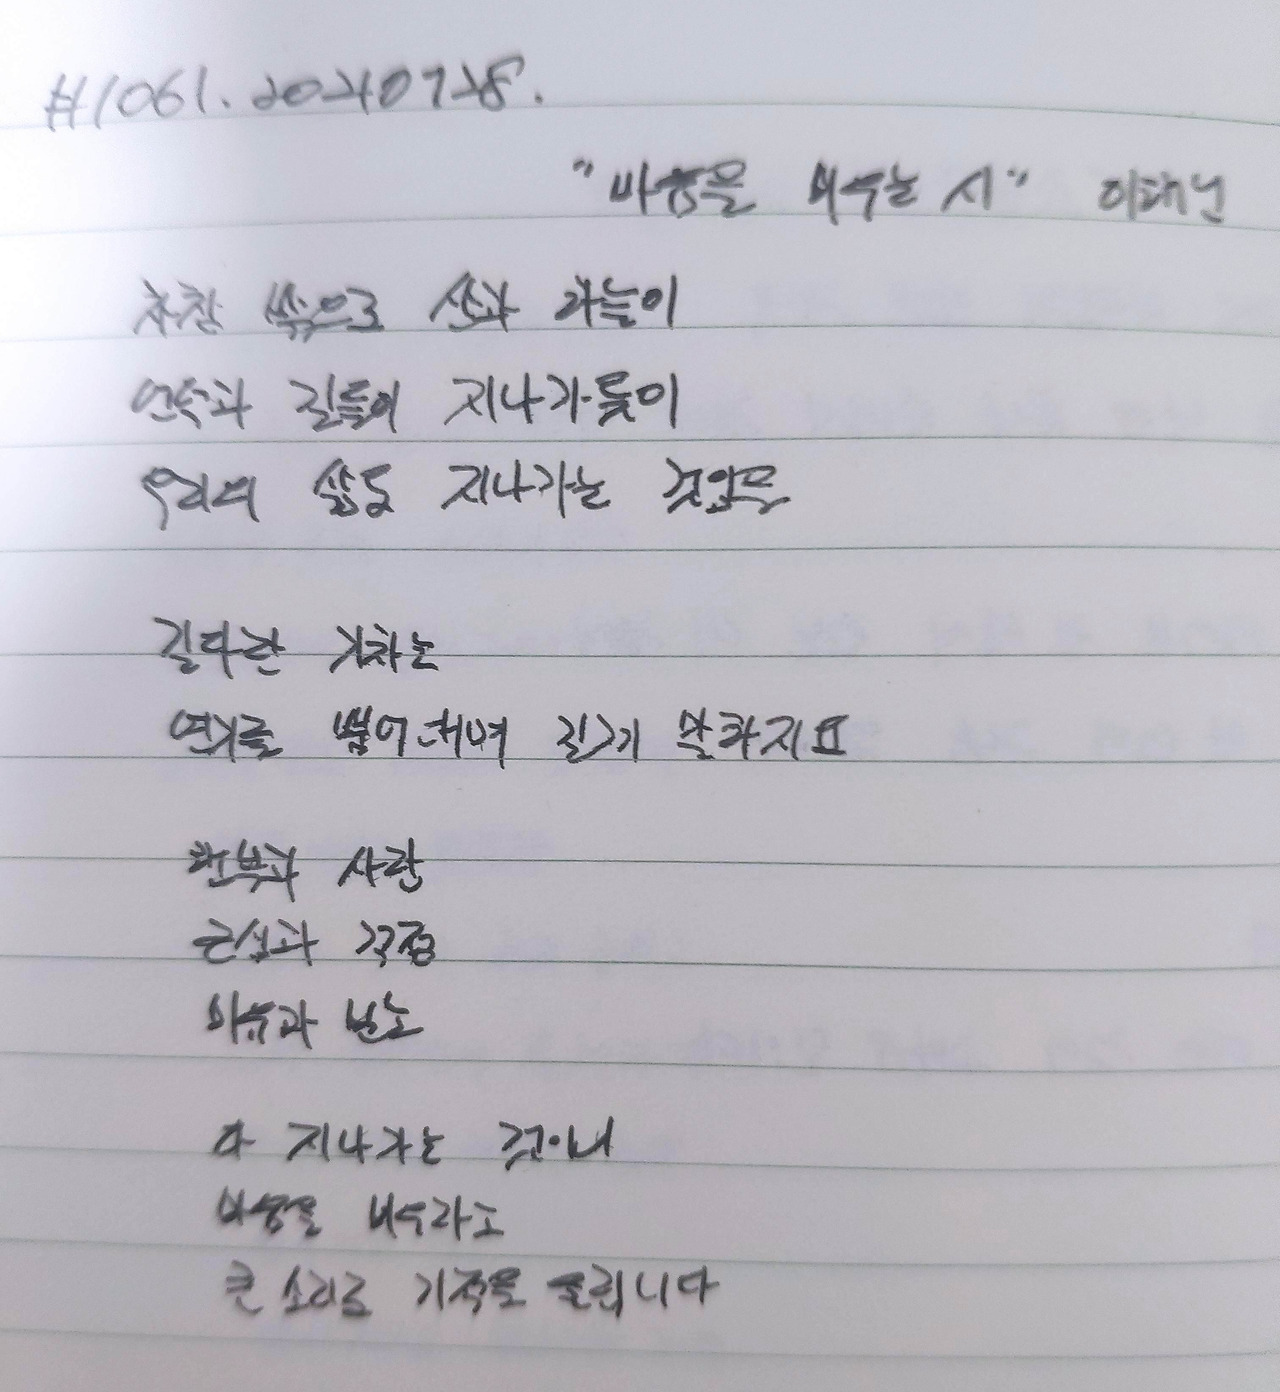 #1061. 20240728.
"마음을 비우는 시" 이해인
차창 밖으로 산과 하늘이
언덕과 길들이 지나가듯이
우리의 삶도 지나가는 것임을
길다란 기차는
연기를 뿜어대며 길게 말하지요
행복과 사랑
근심과 걱정
미움과 분노
다 지나가는 것이니
마음을 비우라고
큰 소리로 기적을 울립니다